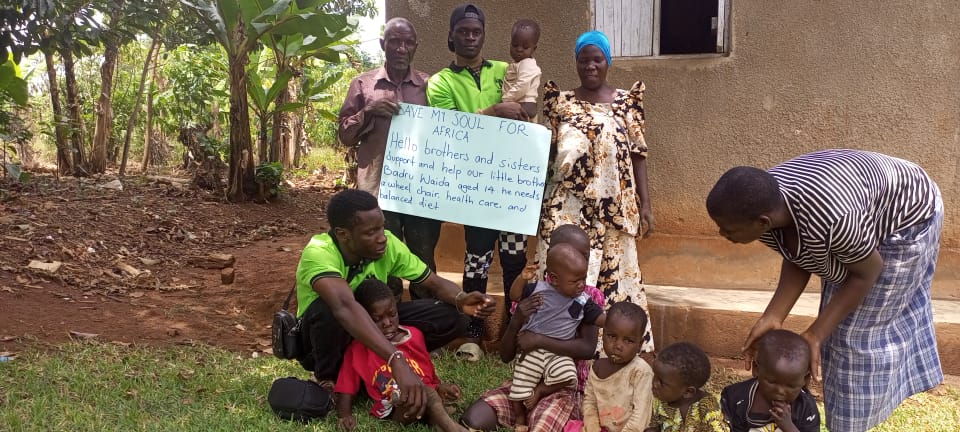 SAVE MY SOUL FOR
AFRICA
Hello brothers and sisters
Support and help our little brother
Badru Waida aged 14 he needs
a wheel chair, health care, and
balanced diet